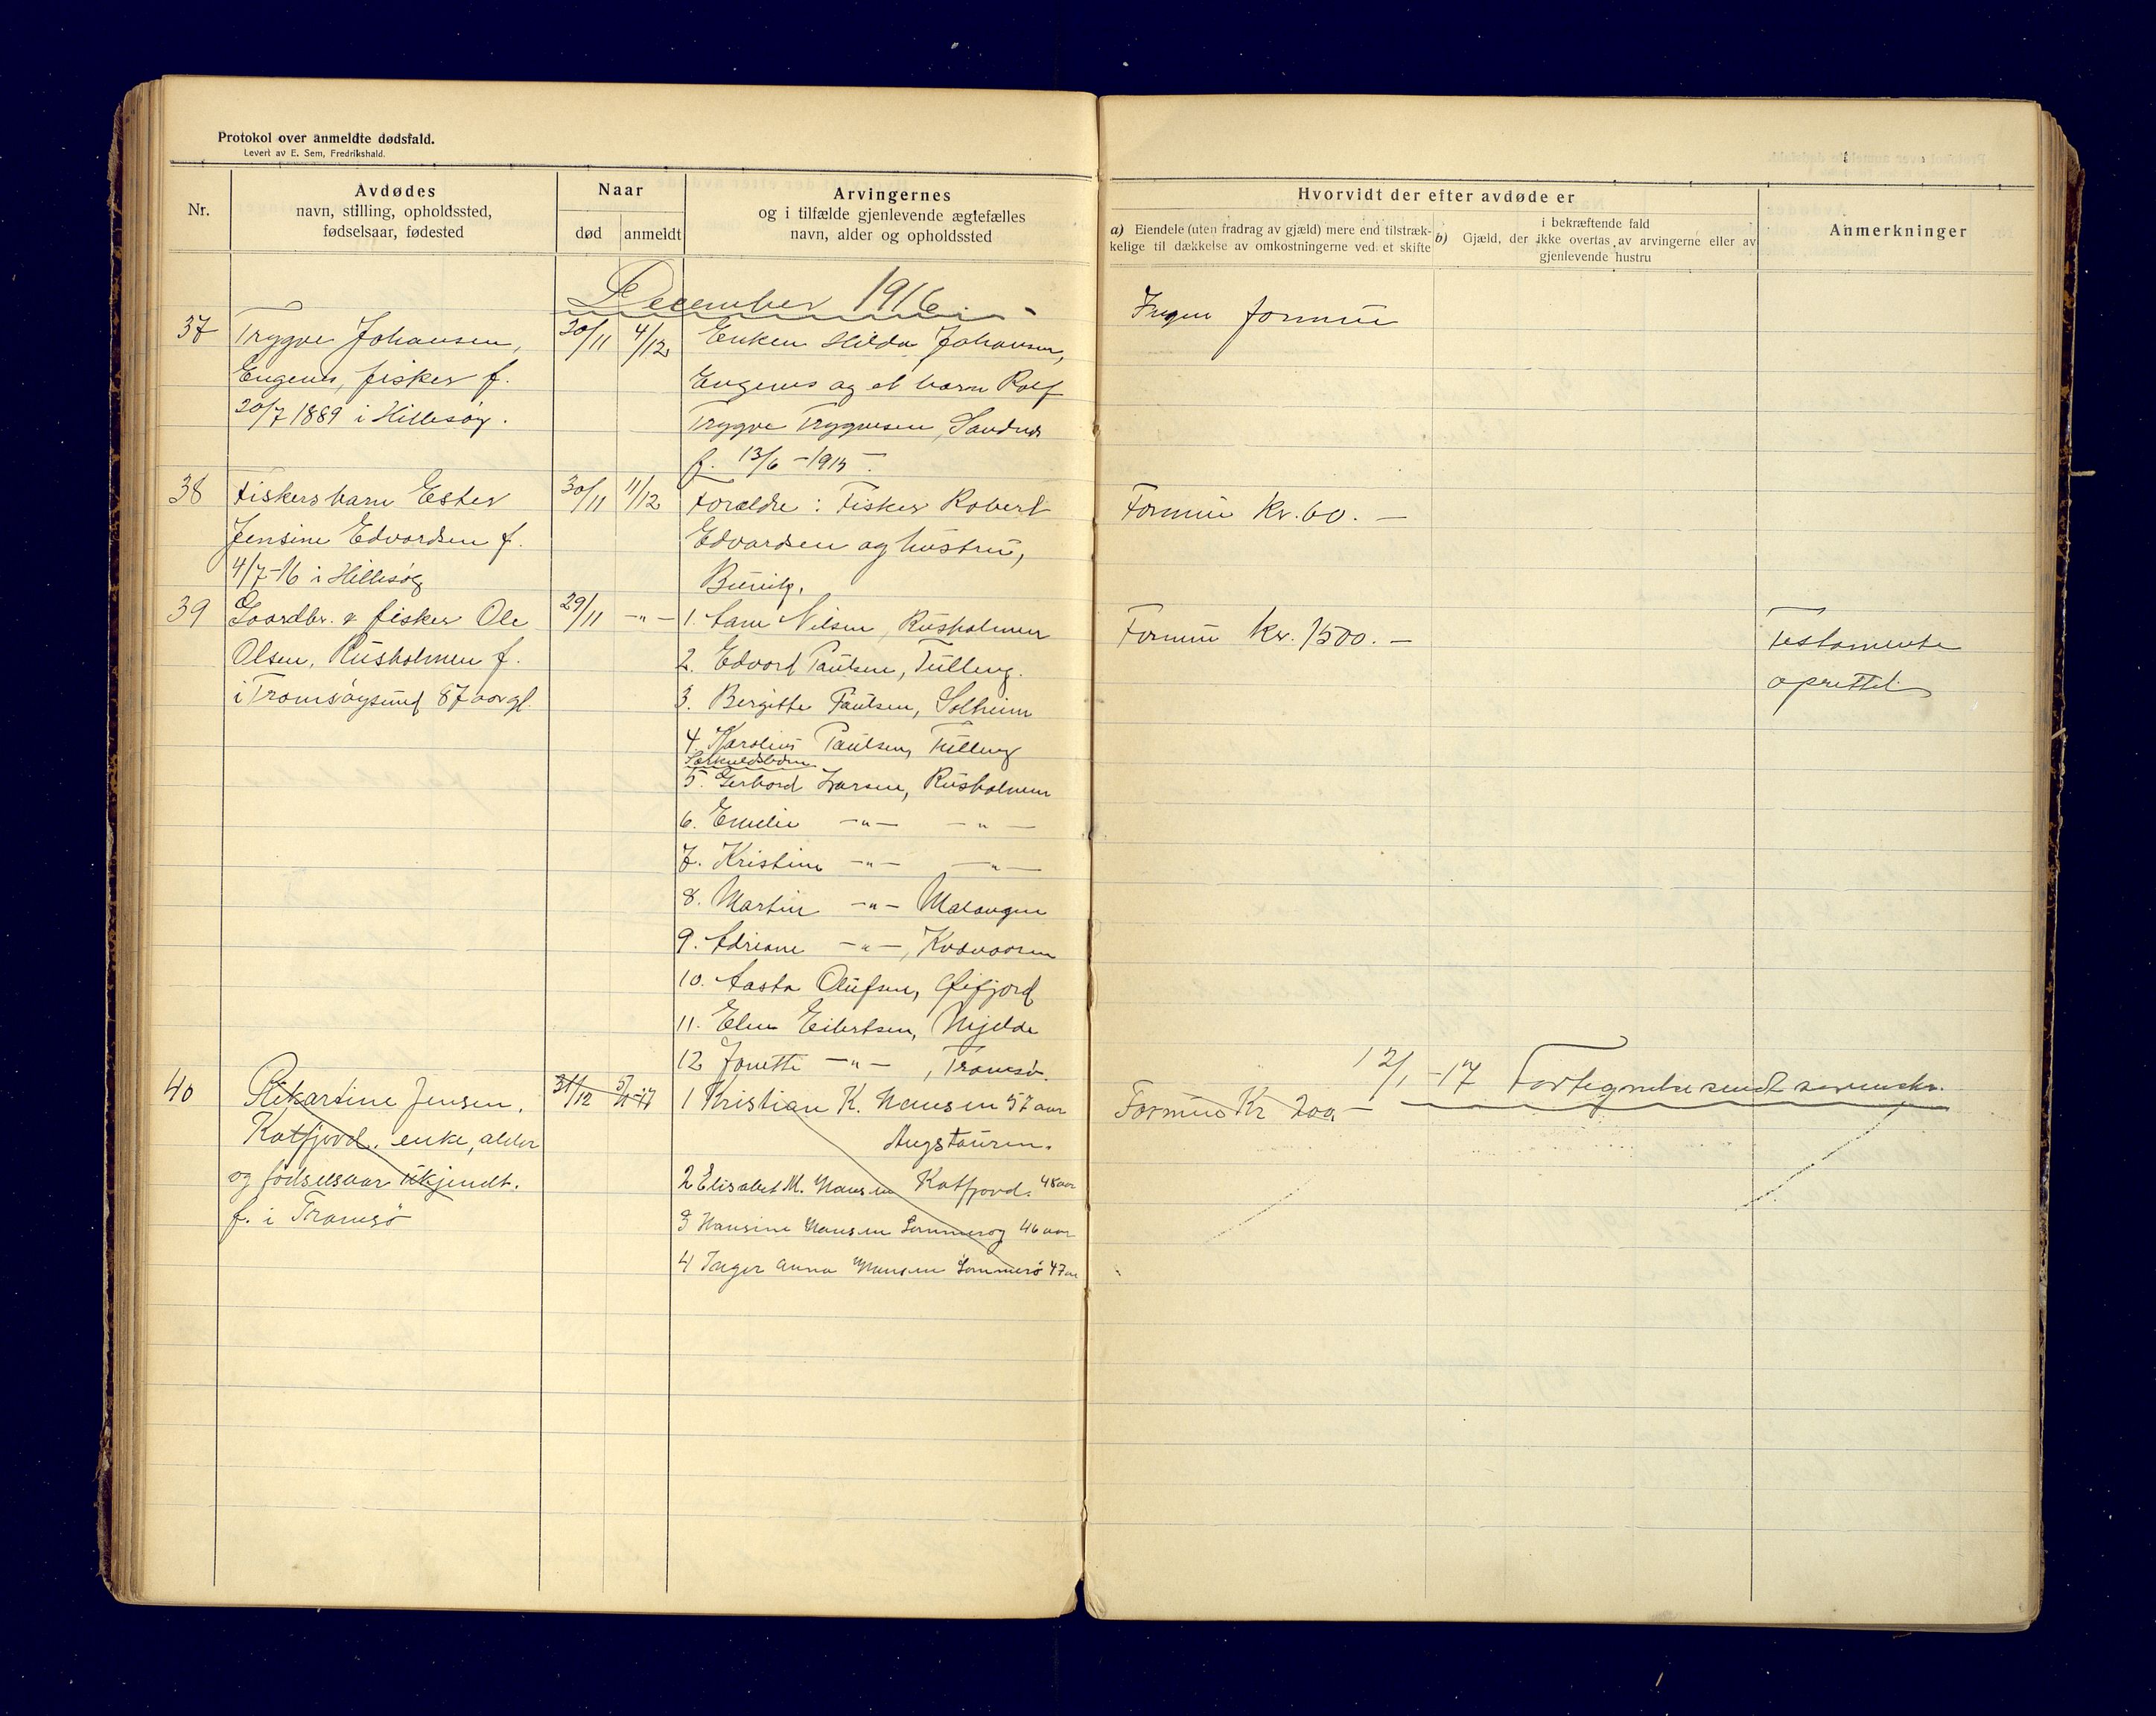 Protokol over anmeldte dødsfald.
Levert av E. Sem, Fredrikshald.
Nr.
Avdødes
navn, stilling, opholdssted,
fødselsaar, fødested
Naar
død
anmeldt
Arvingernes
og i tilfælde gjenlevende ægtefælles
navn, alder og opholdssted
Hvorvidt der efter avdøde er
a) Eiendele (uten fradrag av gjæld) mere end tilstræk-
kelige til dækkelse av omkostningerne ved et skifte
b) i bekræftende fald
Gjæld, der ikke overtas av arvingerne eller av
gjenlevende hustru
Anmerkninger
December 1916.
37 Trygve Johansen,
Engenes, fisker f.
20/7 1889 i Hillesøy.
20/11 4/12
Enken Hilda Johansen,
Engenes og et barn Rolf
Trygve Trygvesen, Sandnes
f. 13/6 - 1915.
Ingen formue
38 Fiskersbarn Ester
Jensine Edvardsen f.
4/7-16 i Hillesøy
30/11 11/12
Forældre: Fisker Robert
Edvardsen og hustru,
Formue Kr. 60. —
39 Gaardbr. & fisker Ole
Olsen, Rusholmen f.
i Tromsøysund 87 aar gl.
29/11 -"-
1. Nilsen, Rusholmen
2. Edvard Paulsen, Tulleng.
3. Bergitte Paulsen, Solheim
4. Karolius Paulsen, Tulleng
Særkuldsbørn
5. Gerhard Larsen, Rusholmen
6. Emilie -"- -"-
7. Kristine -"- -"-
8. Martin -"- Malangen
9. Adriane -"-, Kvævaasen
10. Aasta Olufsen, Øifjord
11. Elen Eilertsen, Mjelde
12 Janette -"-, Tromsø.
Formue kr. 1500. —
Testamente
oprettet
12/1-17 Fortegnelse sendt sorenskr.
40 Rikartine Jensen,
Katfjord, enke, alder
og fødselsaar ukjendt.
f. i Tromsø
31/12 5/1-17
1 Kristian K. Hansen 57 aar
Angstauren.
2 Elisabet M. Hansen Katfjord. 48 aar
3 Hansine Hansen Sommerøy 46 aar
4 Inger Anna Hansen Sommerø 47 aar
Formue Kr 200 —